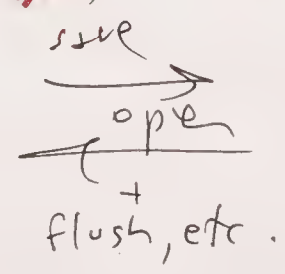 save
open
+
flush, etc.